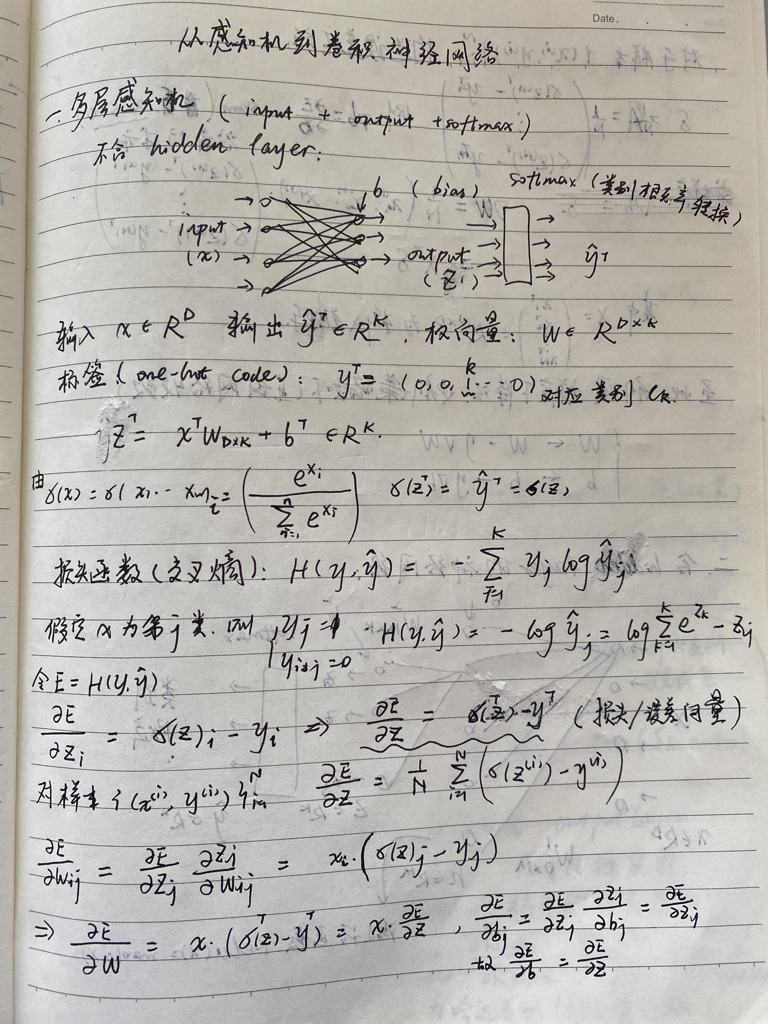 Date.
从感知机到卷积神经网络
一. 多层感知机 (input + output + softmax)
不含 hidden layer:
b (bias) softmax (类别概率转换)
input output
(x) (Zi) ŷᵀ
输入 x ∈ Rᴰ 输出 ŷᵀ ∈ Rᴷ, 权向量: W ∈ Rᴰˣᴷ
标签 (one-hot code): yᵀ = (0, 0, 1 ... 0) 对应类别 Cₖ.
k
Zᵀ = xᵀW_{D×K} + bᵀ ∈ Rᴷ.
由 σ(x) = σ(x₁ ... xₙ)ᵢ = (e^{xᵢ} / Σ_{i=1}^{n} e^{xᵢ}) σ(Zᵀ) = ŷᵀ = σ(z)
损失函数 (交叉熵): H(y, ŷ) = - Σ_{j=1}^{K} yⱼ log ŷⱼ
假定 x 为第 j 类. 则 { yⱼ = 1 H(y, ŷ) = - log ŷⱼ = log Σ_{k=1}^{K} e^{Zₖ} - Zⱼ
y_{i≠j} = 0
令 E = H(y, ŷ)
∂E/∂Zᵢ = σ(z)ᵢ - yᵢ ⇒ ∂E/∂Z = σ(Z)ᵀ - yᵀ (损失/误差向量)
对样本 {(x⁽ⁱ⁾, y⁽ⁱ⁾)}_{i=1}^{N} ∂E/∂Z = 1/N Σ_{i=1}^{N} (σ(z⁽ⁱ⁾) - y⁽ⁱ⁾)
∂E/∂Wᵢⱼ = ∂E/∂Zⱼ ∂Zⱼ/∂Wᵢⱼ = xᵢ · (σ(z)ⱼ - yⱼ)
⇒ ∂E/∂W = x · (σ(z)ᵀ - yᵀ) = x · ∂E/∂Z , ∂E/∂bⱼ = ∂E/∂Zⱼ ∂Zⱼ/∂bⱼ = ∂E/∂Zⱼ
故 ∂E/∂b = ∂E/∂Z